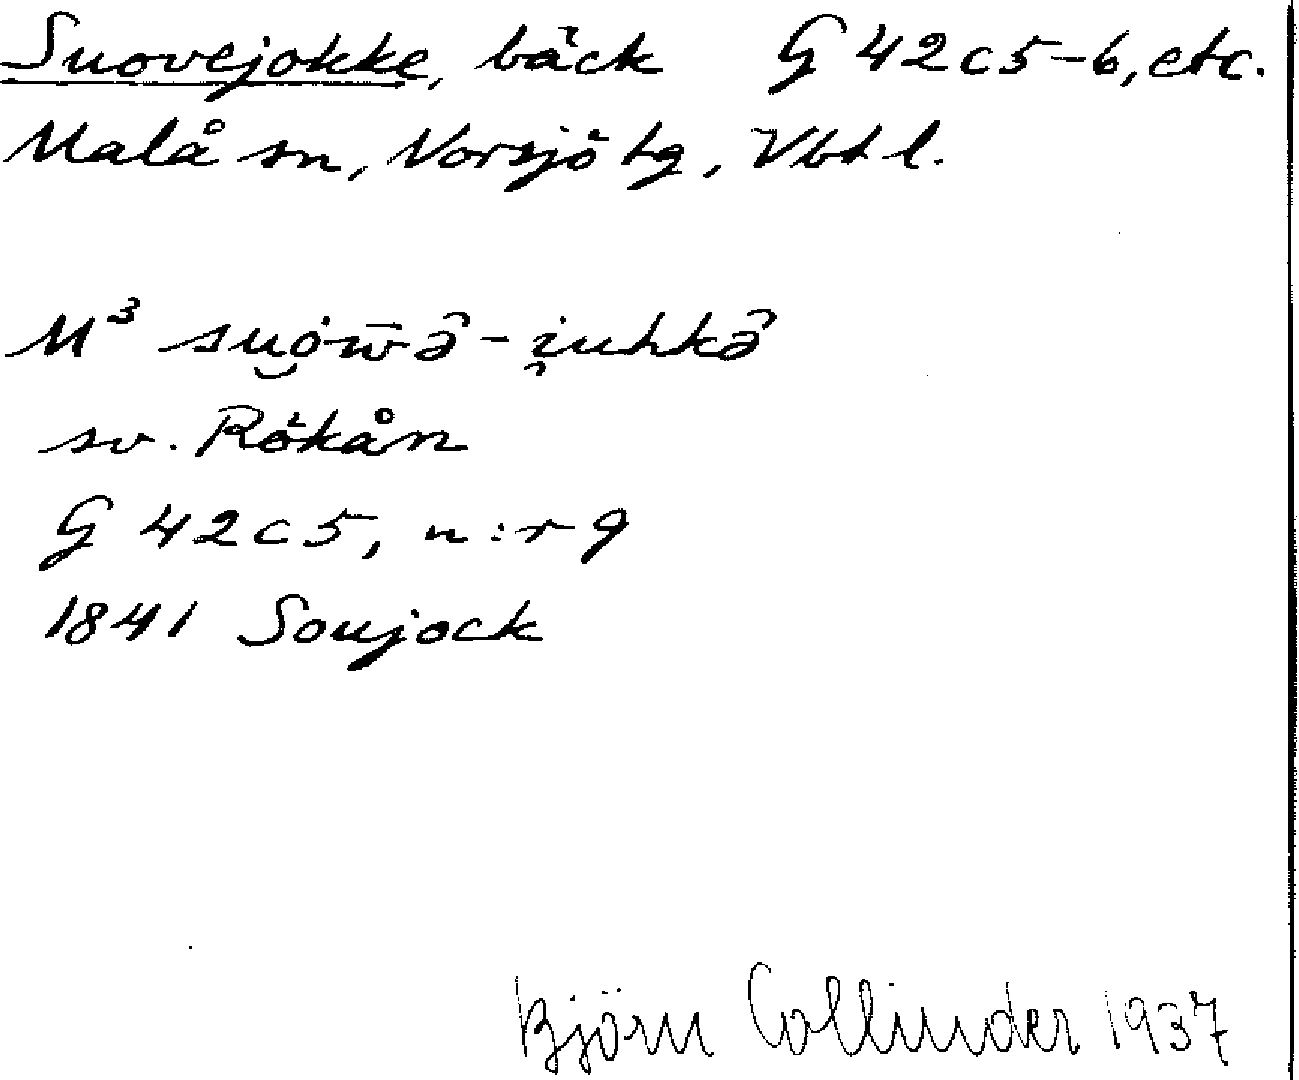 Suovejokke, bäck G 42c5-6, etc.
Malå sn, Norsjö tg, Vbt l.
M³ su̯ȯw̄ə̂-i̯uhkə̂
sv. Rökån
G 42c5, n:r 9
1841 Soujock
Björn Collinder 1937